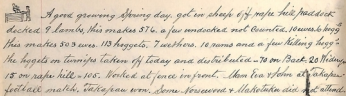 A good growing Spring day, got in sheep off rape hill paddock
docked 9 lambs, this makes 576. a few undocked not counted. 10 ewes 6 hogg
this makes 503 ewes. 113 hoggets. 7 wethers. 10 rams and a few Killing hogg
the hoggets on turnips taken off today and distributed = 70 on Back 20
15 on rape hill = 105. Worked at fence in front. Mem Eva & John at Takapau
football match, Takapau won. Some Norsewood & Makotuku did not attend